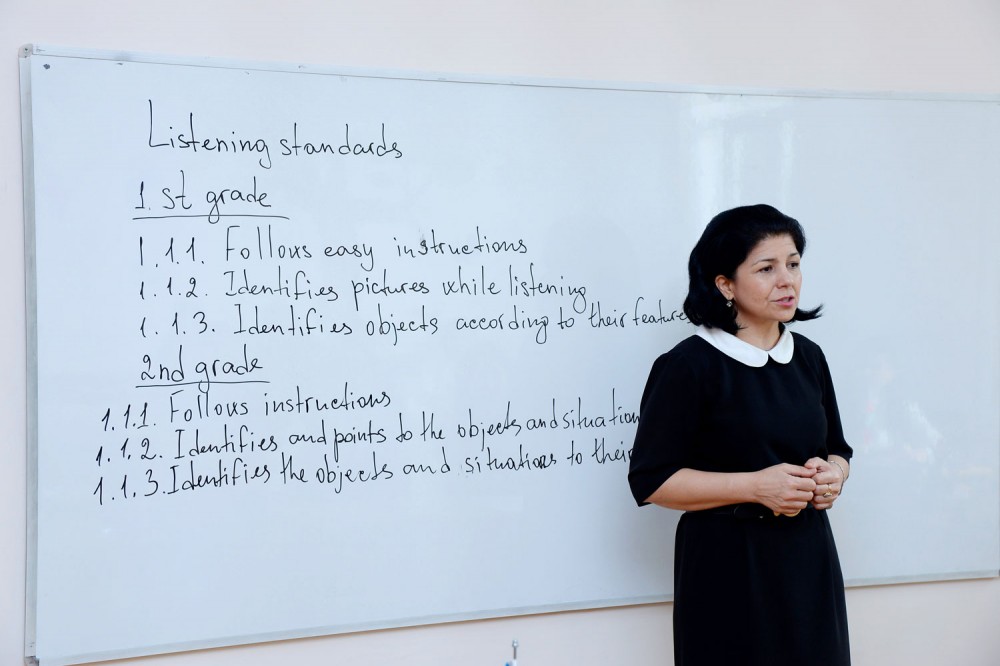 Listening standards
1. st grade
1.1.1. Follows easy instructions
1.1.2. Identifies pictures while listening
1.1.3. Identifies objects according to their feature
2nd grade
1.1.1. Follows instructions
1.1.2. Identifies and points to the objects and situation
1.1.3. Identifies the objects and situations to their